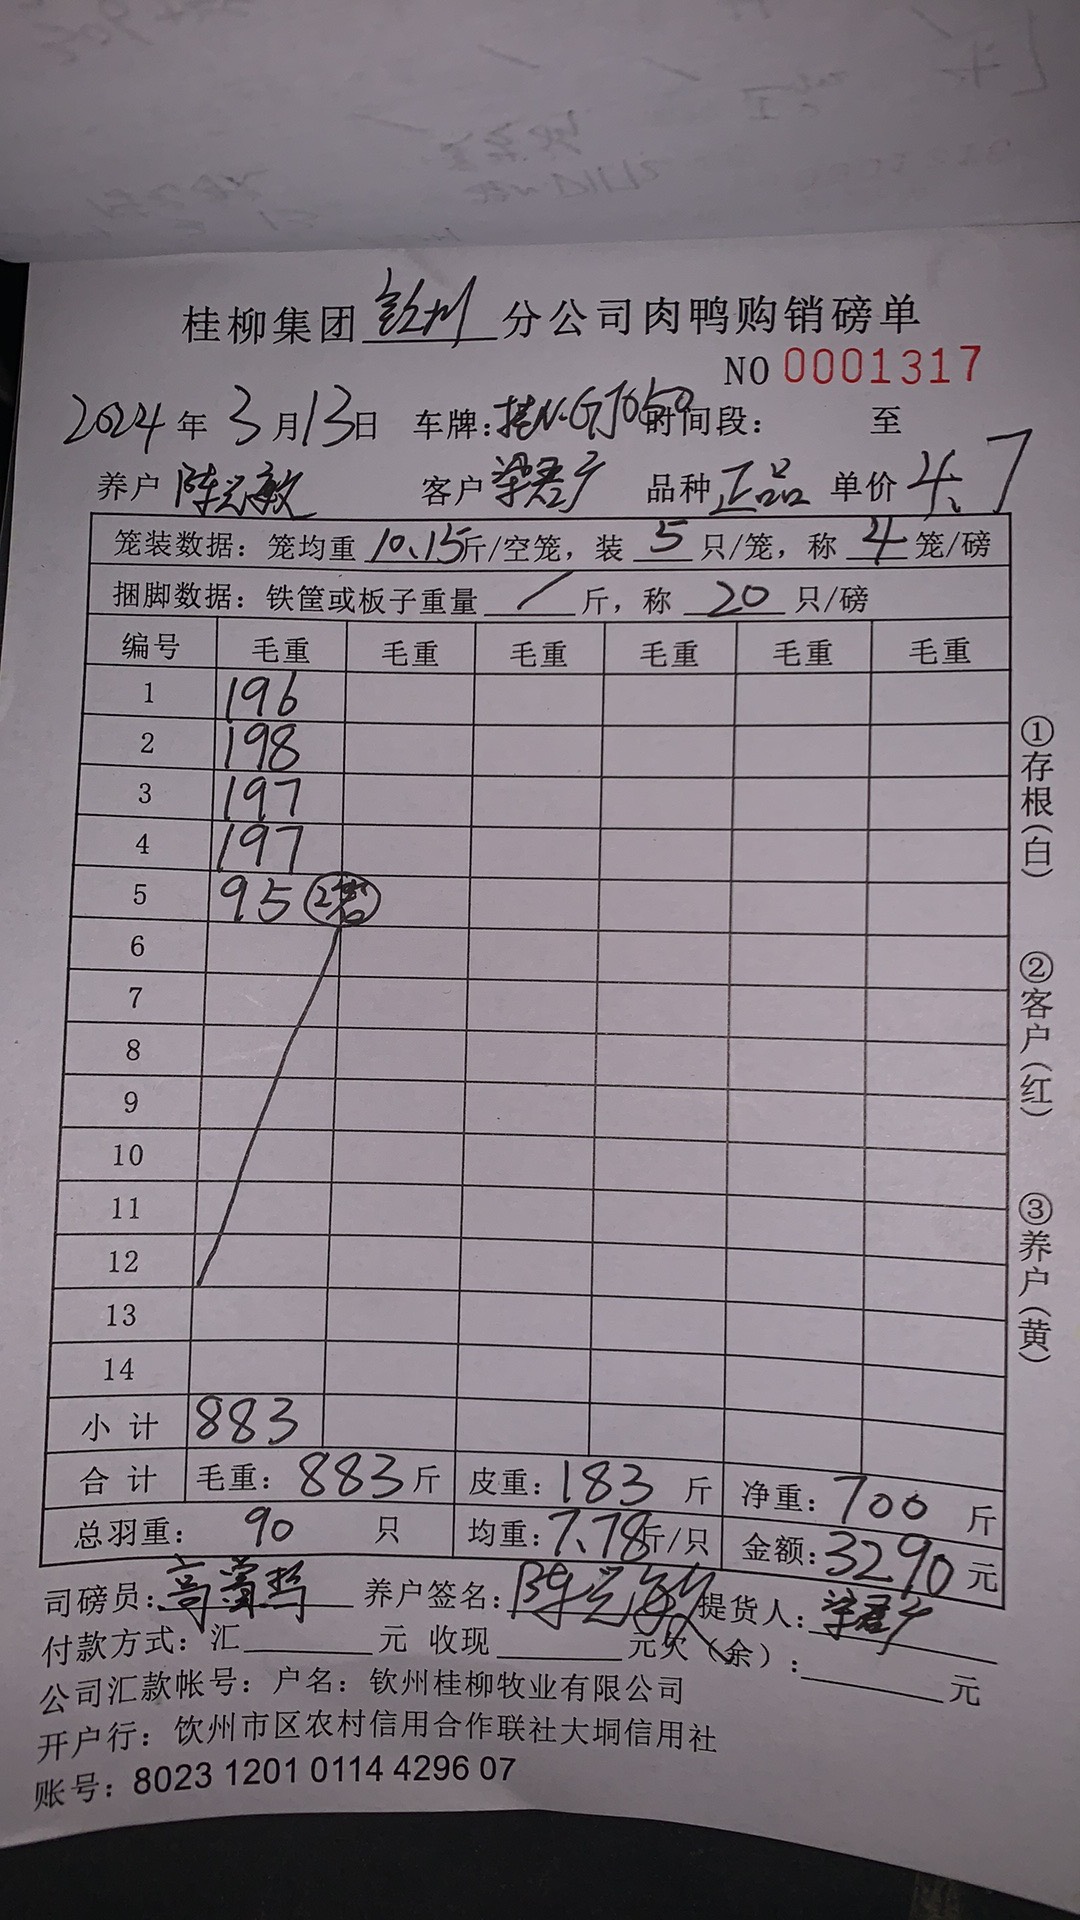 桂柳集团 钦州 分公司肉鸭购销磅单
NO 0001317
2024 年 3 月 13 日 车牌:桂N·GJ050 时间段: 至
养户 陈兴敏 客户 梁君广 品种 正品 单价 4.7
笼装数据: 笼均重 10.15 斤/空笼, 装 5 只/笼, 称 4 笼/磅
捆脚数据: 铁筐或板子重量 / 斤, 称 20 只/磅
编号 毛重 毛重 毛重 毛重 毛重 毛重
1 196
2 198
3 197
4 197
5 95 2笼
6
7
8
9
10
11
12
13
14
小 计 883
合 计 毛重: 883 斤 皮重: 183 斤 净重: 700 斤
总羽重: 90 只 均重: 7.78 斤/只 金额: 3290 元
司磅员: 养户签名: 陈兴敏 提货人: 梁君广
付款方式: 汇 元 收现 元欠（余）: 元
公司汇款帐号: 户名: 钦州桂柳牧业有限公司
开户行: 钦州市区农村信用合作联社大垌信用社
账号: 8023 1201 0114 4296 07
①存根(白)
②客户(红)
③养户(黄)